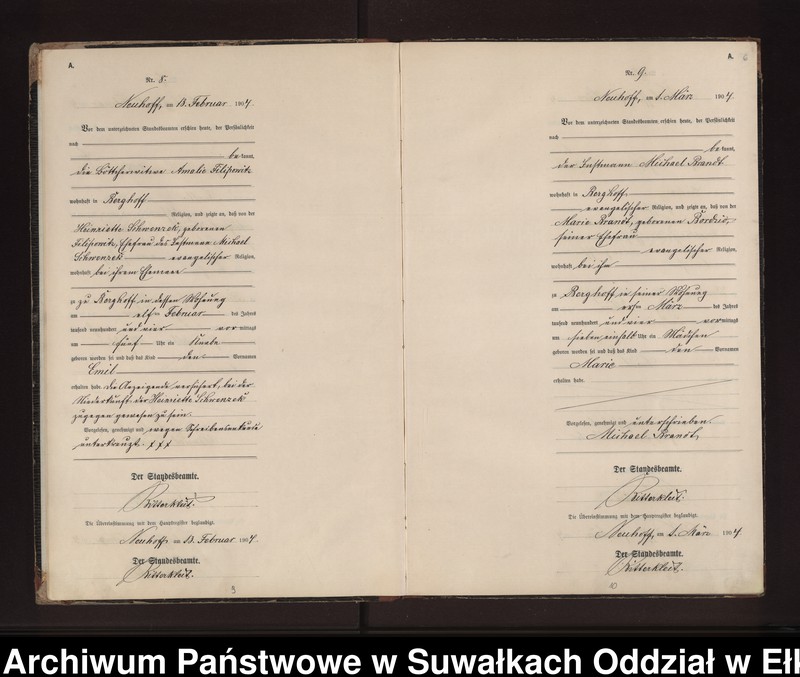 A.
Nr. 8.
Neuhoff, am 13. Februar 1904.
Vor dem unterzeichneten Standesbeamten erschien heute, der Persönlichkeit
nach
be kannt,
die Böttcherwitwe Amalie Filipowitz
wohnhaft in Berghoff
Religion, und zeigte an, daß von der
Heinriette Schwenzek, geborenen
Filipowitz, Ehefrau des Instmann Michael
Schwenzek evangelischer Religion,
wohnhaft bei ihrem Ehemann
zu zu Berghoff in dessen Wohnung
am elften Februar des Jahres
tausend neunhundert und vier vor mittags
um fünf Uhr ein Knabe
geboren worden sei und daß das Kind den Vornamen
Emil
erhalten habe. Die Anzeigende versichert, bei der
Niederkunft der Heinriette Schwenzek
zugegen gewesen zu sein.
Vorgelesen, genehmigt und wegen Schreibensunkunde
unterkreuzt. x x x
Der Standesbeamte.
Ritterkleit.
Die Übereinstimmung mit dem Hauptregister beglaubigt.
Neuhoff, am 13. Februar 1904.
Der Standesbeamte.
Ritterkleit.
A. 6
Nr. 9.
Neuhoff, am 1. März 1904.
Vor dem unterzeichneten Standesbeamten erschien heute, der Persönlichkeit
nach
be kannt,
der Instmann Michael Brandt
wohnhaft in Berghoff
evangelischer Religion, und zeigte an, daß von der
Marie Brandt, geborenen
seiner Ehefrau
evangelischer Religion,
wohnhaft bei ihm
zu Berghoff in seiner Wohnung
am ersten März des Jahres
tausend neunhundert und vier vor mittags
um sieben einhalb Uhr ein Mädchen
geboren worden sei und daß das Kind den Vornamen
Marie
erhalten habe.
Vorgelesen, genehmigt und unterschrieben.
Michael Brandt,
Der Standesbeamte.
Ritterkleit.
Die Übereinstimmung mit dem Hauptregister beglaubigt.
Neuhoff, am 1. März 1904.
Der Standesbeamte.
Ritterkleit.
10
Archiwum Państwowe w Suwałkach Oddział w Ełk